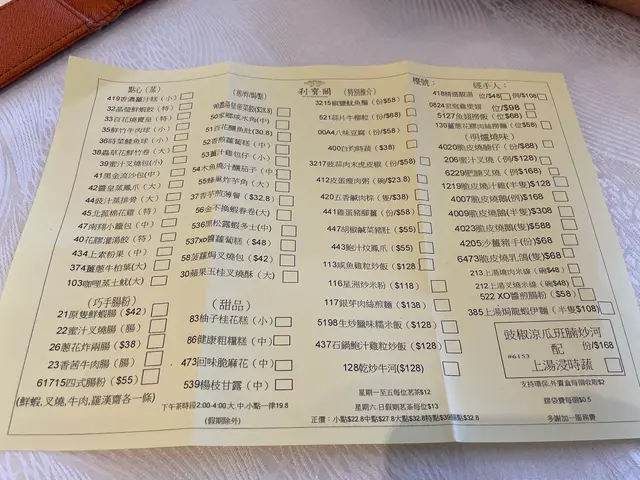 利寶閣
檯號：
經手人：
點心（蒸）
419香濃薑汁糕（小）
32晶瑩鮮蝦餃（特）
33百花燒賣皇（特）
35鮮竹牛肉球（小）
36時菜鯪魚球（小）
38蟲草花鮮竹卷（大）
39蜜汁叉燒包（小）
41黑金流沙包（中）
42醬皇蒸鳳爪（大）
44豉汁蒸排骨（大）
45北菰棉花雞（特）
47南翔小籠包（中）
40花膠灌湯餃（特）
434上素粉果（中）
374薑蔥牛柏葉（大）
103咖喱蒸土魷（大）
（巧手腸粉）
21原隻鮮蝦腸（$42）
22蜜汁叉燒腸（腸）
26蔥花炸兩腸（$38）
23香茜牛肉腸（腸）
61715四式腸粉（$55）
（鮮蝦,叉燒,牛肉,羅漢齋各一條）
（煎/炸/焗點）
50家鄉咸水角（中）
51百花釀魚肚（30.8）
52香煎蘿蔔糕（中）
53薑汁雞包仔（小）
54木魚燒汁釀茄子（中）
55蜂巢炸芋角（大）
37香芋煎薄餐（$32.8）
56金不換蝦春卷（大）
536黑松露蝦多士（中）
537xo醬蘿蔔糕（$48）
58菠蘿焗叉燒包（$42）
30蘋果玉桂叉燒酥（大）
（甜品）
83柚子桂花糕（小）
86健康粗糧糕（中）
473回味脆麻花（中）
539楊枝甘露（中）
下午茶時段2:00-4:00大,中,小點一律19.8
（假期除外）
（特別推介）
3215椒鹽魷魚鬚（份$58）
521蒜片牛柳粒（$68）
00A4八味豆腐（份$58）
400白灼時蔬（$38）
3217豉蒜肉末虎皮椒（份$58）
412皮蛋瘦肉粥（碗/$23.8）
420五香鹹肉粽（隻$38）
441雞蛋豬腳薑（份$58）
447鹹瘦肉豬肚（$55）
443鮑汁炆鳳爪（$55）
113咸魚雞粒炒飯（$128）
116星洲炒米粉（$118）
117銀芽肉絲煎麵（$138）
5198生炒臘味糯米飯（$128）
437石鍋鮑汁雞粒炒飯（$128）
128乾炒牛河($128)
星期一至五每位茗茶$12
星期六,日假期茗茶每位$13
418精選靚湯 位/$48 例/$108
位/$98
5127魚翅撈飯（$68）
130薑蔥花膠肉絲撈麵（位$58）
（明爐燒味）
4020脆皮燒腩仔（份$88）
206蜜汁叉燒（例/$128）
6229肥腩叉燒（例/$168）
1219脆皮燒汁雞(半隻)$128
4007脆皮燒鵝（例$168）
4009脆皮燒鵝(半隻)$308
4023脆皮燒鵝（隻$588）
4205沙薑豬手(份)$68
6473脆皮燒乳鴿(隻$68)
213上湯燒肉米線（碗$48）
212上湯叉燒米線（碗$48）
522 XO醬煎腸粉（$58）
385上湯焗龍蝦伊麵（半隻$108）
豉椒涼瓜班腩炒河
配 份/$168
#6153 上湯浸時蔬
支持環保,外賣盒每個收取$2
膠袋費每個$0.5
多謝加一服務費